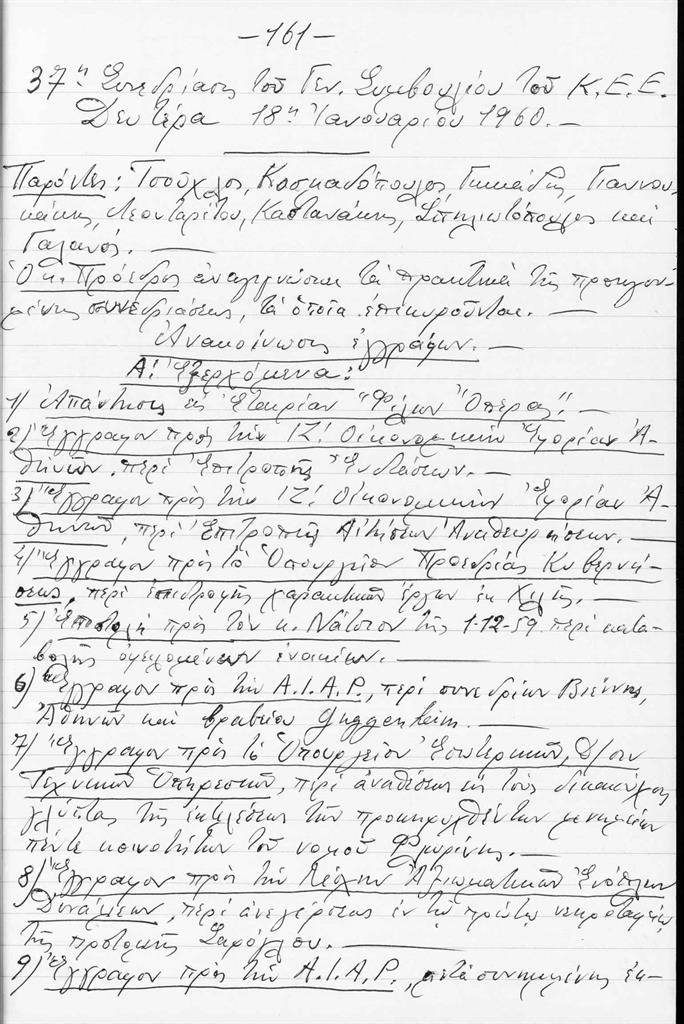 -161-
37η Συνεδρίασις τοῦ Γεν. Συμβουλίου τοῦ Κ.Ε.Ε.
Δευτέρα 18η Ἰανουαρίου 1960.-
Παρόντες: Τσούχλος, Κοσκαδόπουλος, Γιαννου-
κάκης, Λεονταρίτου, Καστανάκης, Σπηλιωτόπουλος καὶ
Γαλανός.
Ὁ κ. Πρόεδρος ἀναγιγνώσκει τὰ πρακτικὰ τῆς προηγου-
μένης συνεδριάσεως, τὰ ὁποῖα ἐπικυροῦνται.
Ἀνακοίνωσις ἐγγράφων.-
Α! Ἐξερχόμενα:
1) Ἀπάντησις εἰς Ἑταιρίαν "Φίλων Ὄπερας".-
2) Ἔγγραφον πρὸς τὴν ΙΖ! Οἰκονομικὴν Ἐφορίαν Ἀ-
θηνῶν, περὶ Ἐπιτροπῆς Ἐνστάσεων.-
3) Ἔγγραφον πρὸς τὴν ΙΖ! Οἰκονομικὴν Ἐφορίαν Ἀ-
θηνῶν, περὶ Ἐπιτροπῆς Αἰτήσεων Ἀναθεωρήσεων.-
4) Ἔγγραφον πρὸς τὸ Ὑπουργεῖον Προεδρίας Κυβερνή-
σεως, περὶ ἐπιστροφῆς χαρακτικῶν ἔργων ἐκ Χιλῆς.-
5) Ἐπιστολὴ πρὸς τὸν κ. Νάτσιον τῆς 1-12-59 περὶ κατα-
βολῆς ὀφειλομένων ἐνοικίων.
6) Ἔγγραφον πρὸς τὴν A.I.A.P., περὶ συνεδρίων Βιέννης,
Ἀθηνῶν καὶ βραβείου Guggenheim.
7) Ἔγγραφον πρὸς τὸ Ὑπουργεῖον Ἐσωτερικῶν, Δ/σιν
Τεχνικῶν Ὑπηρεσιῶν, περὶ ἀναθέσεως εἰς τοὺς δικαιούχους
γλύπτας τῆς ἐκτελέσεως τῶν προκηρυχθέντων μνημείων
πέντε κοινοτήτων τοῦ νομοῦ Φλωρίνης.-
8) Ἔγγραφον πρὸς τὴν Λέσχην Ἀξιωματικῶν Ἐνόπλων
Δυνάμεων, περὶ ἀνεγέρσεως ἐν τῷ πρώτῳ νεκροταφείῳ
τῆς προτομῆς Σαρόγλου.
9) Ἔγγραφον πρὸς τὴν A.I.A.P., μετὰ συνημμένης ἐκ-